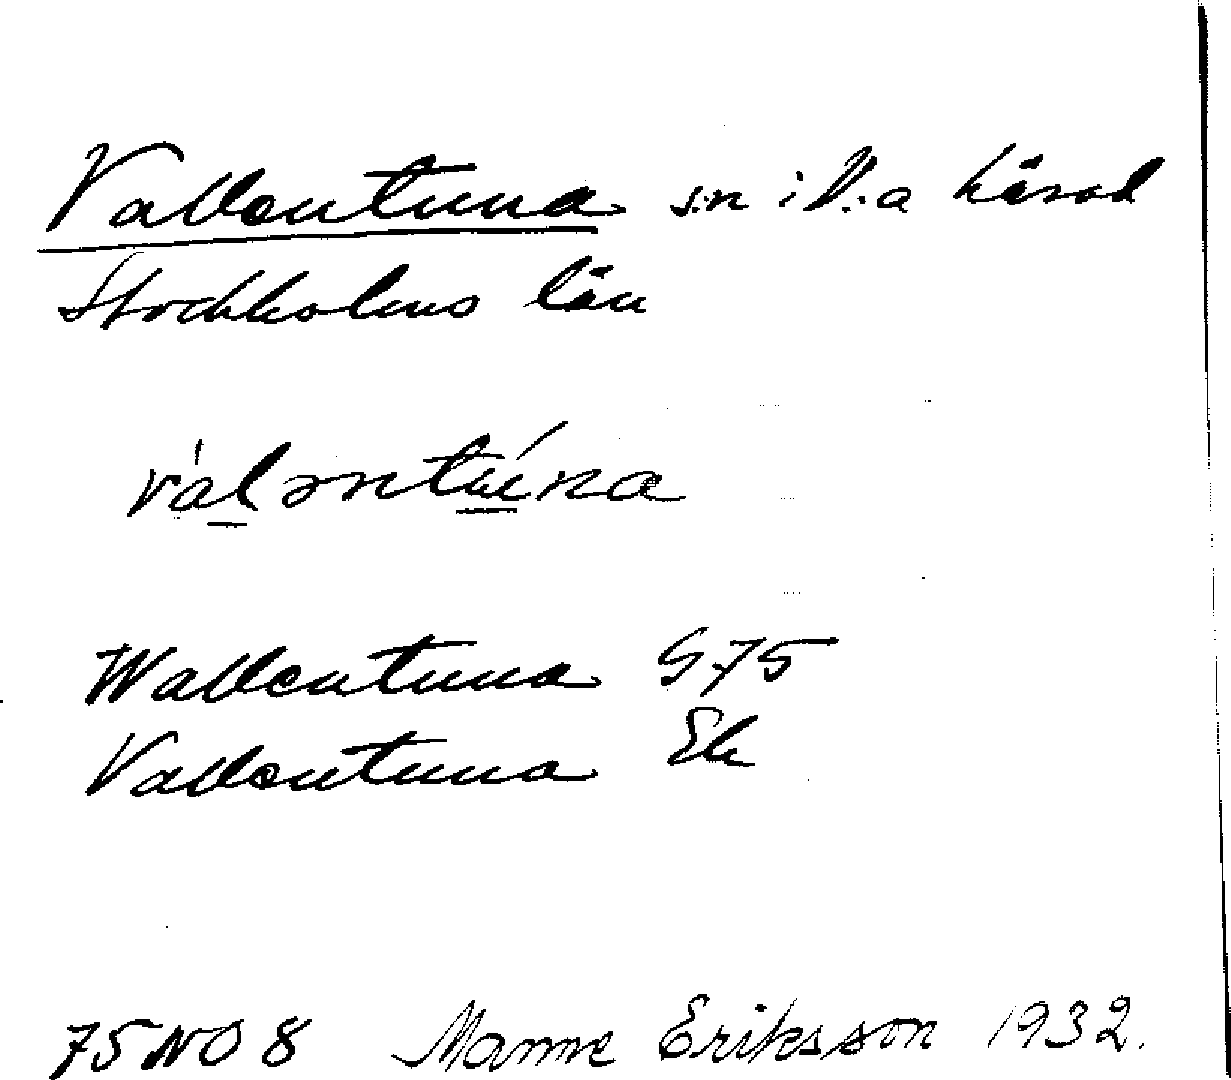 Vallentuna s:n i V:a härad
Stockholms län
valəntu̲na
Wallentuna G75
Vallentuna Ek
75NO8 Manne Eriksson 1932.